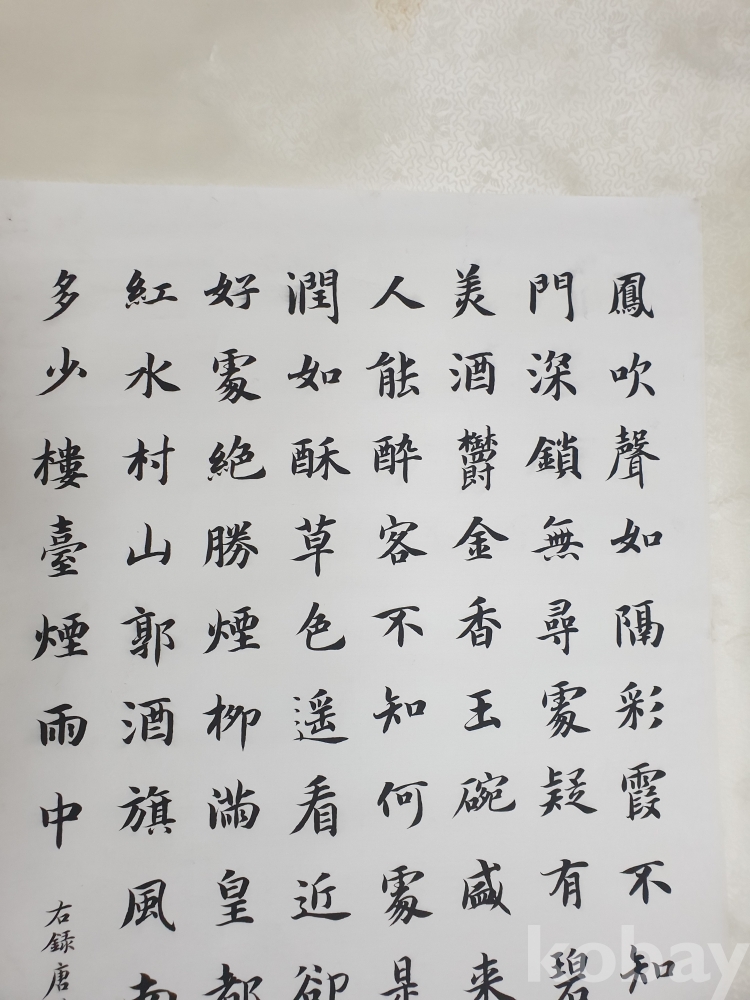 鳳吹聲如隔彩霞不知
門深鎖無尋處疑有碧
美酒鬱金香玉碗盛来
人能醉客不知何處是
潤如酥草色遥看近卻
好處絶勝煙柳滿皇都
紅水村山郭酒旗風南
多少樓臺煙雨中
右録唐
kobay